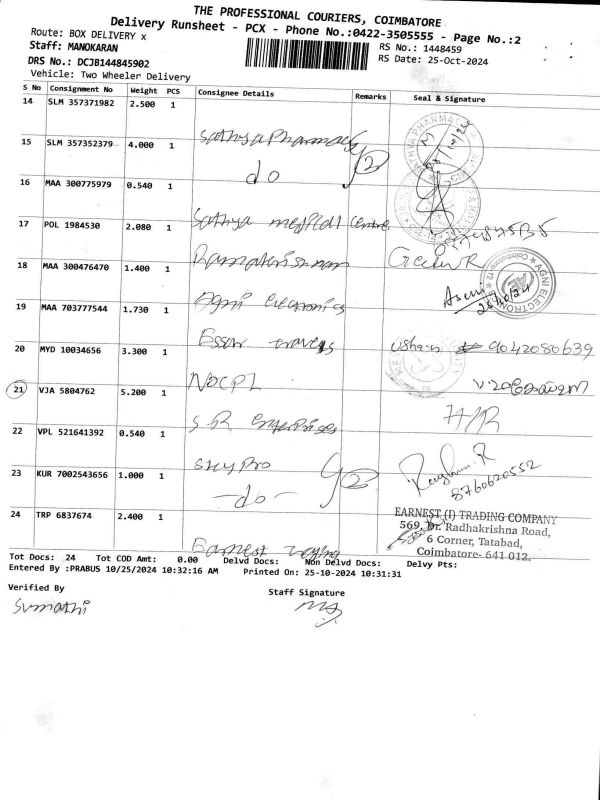 THE PROFESSIONAL COURIERS, COIMBATORE
Delivery Runsheet - PCX - Phone No.:0422-3505555 - Page No.:2
Route: BOX DELIVERY x
RS No.: 1448459
Staff: MANOKARAN
RS Date: 25-Oct-2024
DRS No.: DCJB144845902
Vehicle: Two Wheeler Delivery
S No Consignment No Weight PCS Consignee Details Remarks Seal & Signature
14 SLM 357371982 2.500 1 Sathya Pharmacy
15 SLM 357352379 4.000 1 do 2
16 MAA 300775979 0.540 1 Sathya medical centre
17 POL 1984530 2.080 1 Ramakrishnan
18 MAA 300476470 1.400 1 Agni electronics
AGNI ELECTRON
19 MAA 703777544 1.730 1 Essar travels
20 MYD 10034656 3.300 1 NBCPL Usha 9042080639
21 VJA 5804762 5.200 1 S.R. enterprises
22 VPL 521641392 0.540 1 skypro
23 KUR 7002543656 1.000 1 -do- 2 8760620552
24 TRP 6837674 2.400 1 Earnest
EARNEST (I) TRADING COMPANY
569, Dr. Radhakrishna Road,
6 Corner, Tatabad,
Coimbatore- 641 012.
Tot Docs: 24 Tot COD Amt: 0.00 Delvd Docs: Non Delvd Docs: Delvy Pts:
Entered By :PRABUS 10/25/2024 10:32:16 AM Printed On: 25-10-2024 10:31:31
Verified By Staff Signature
Sumathi